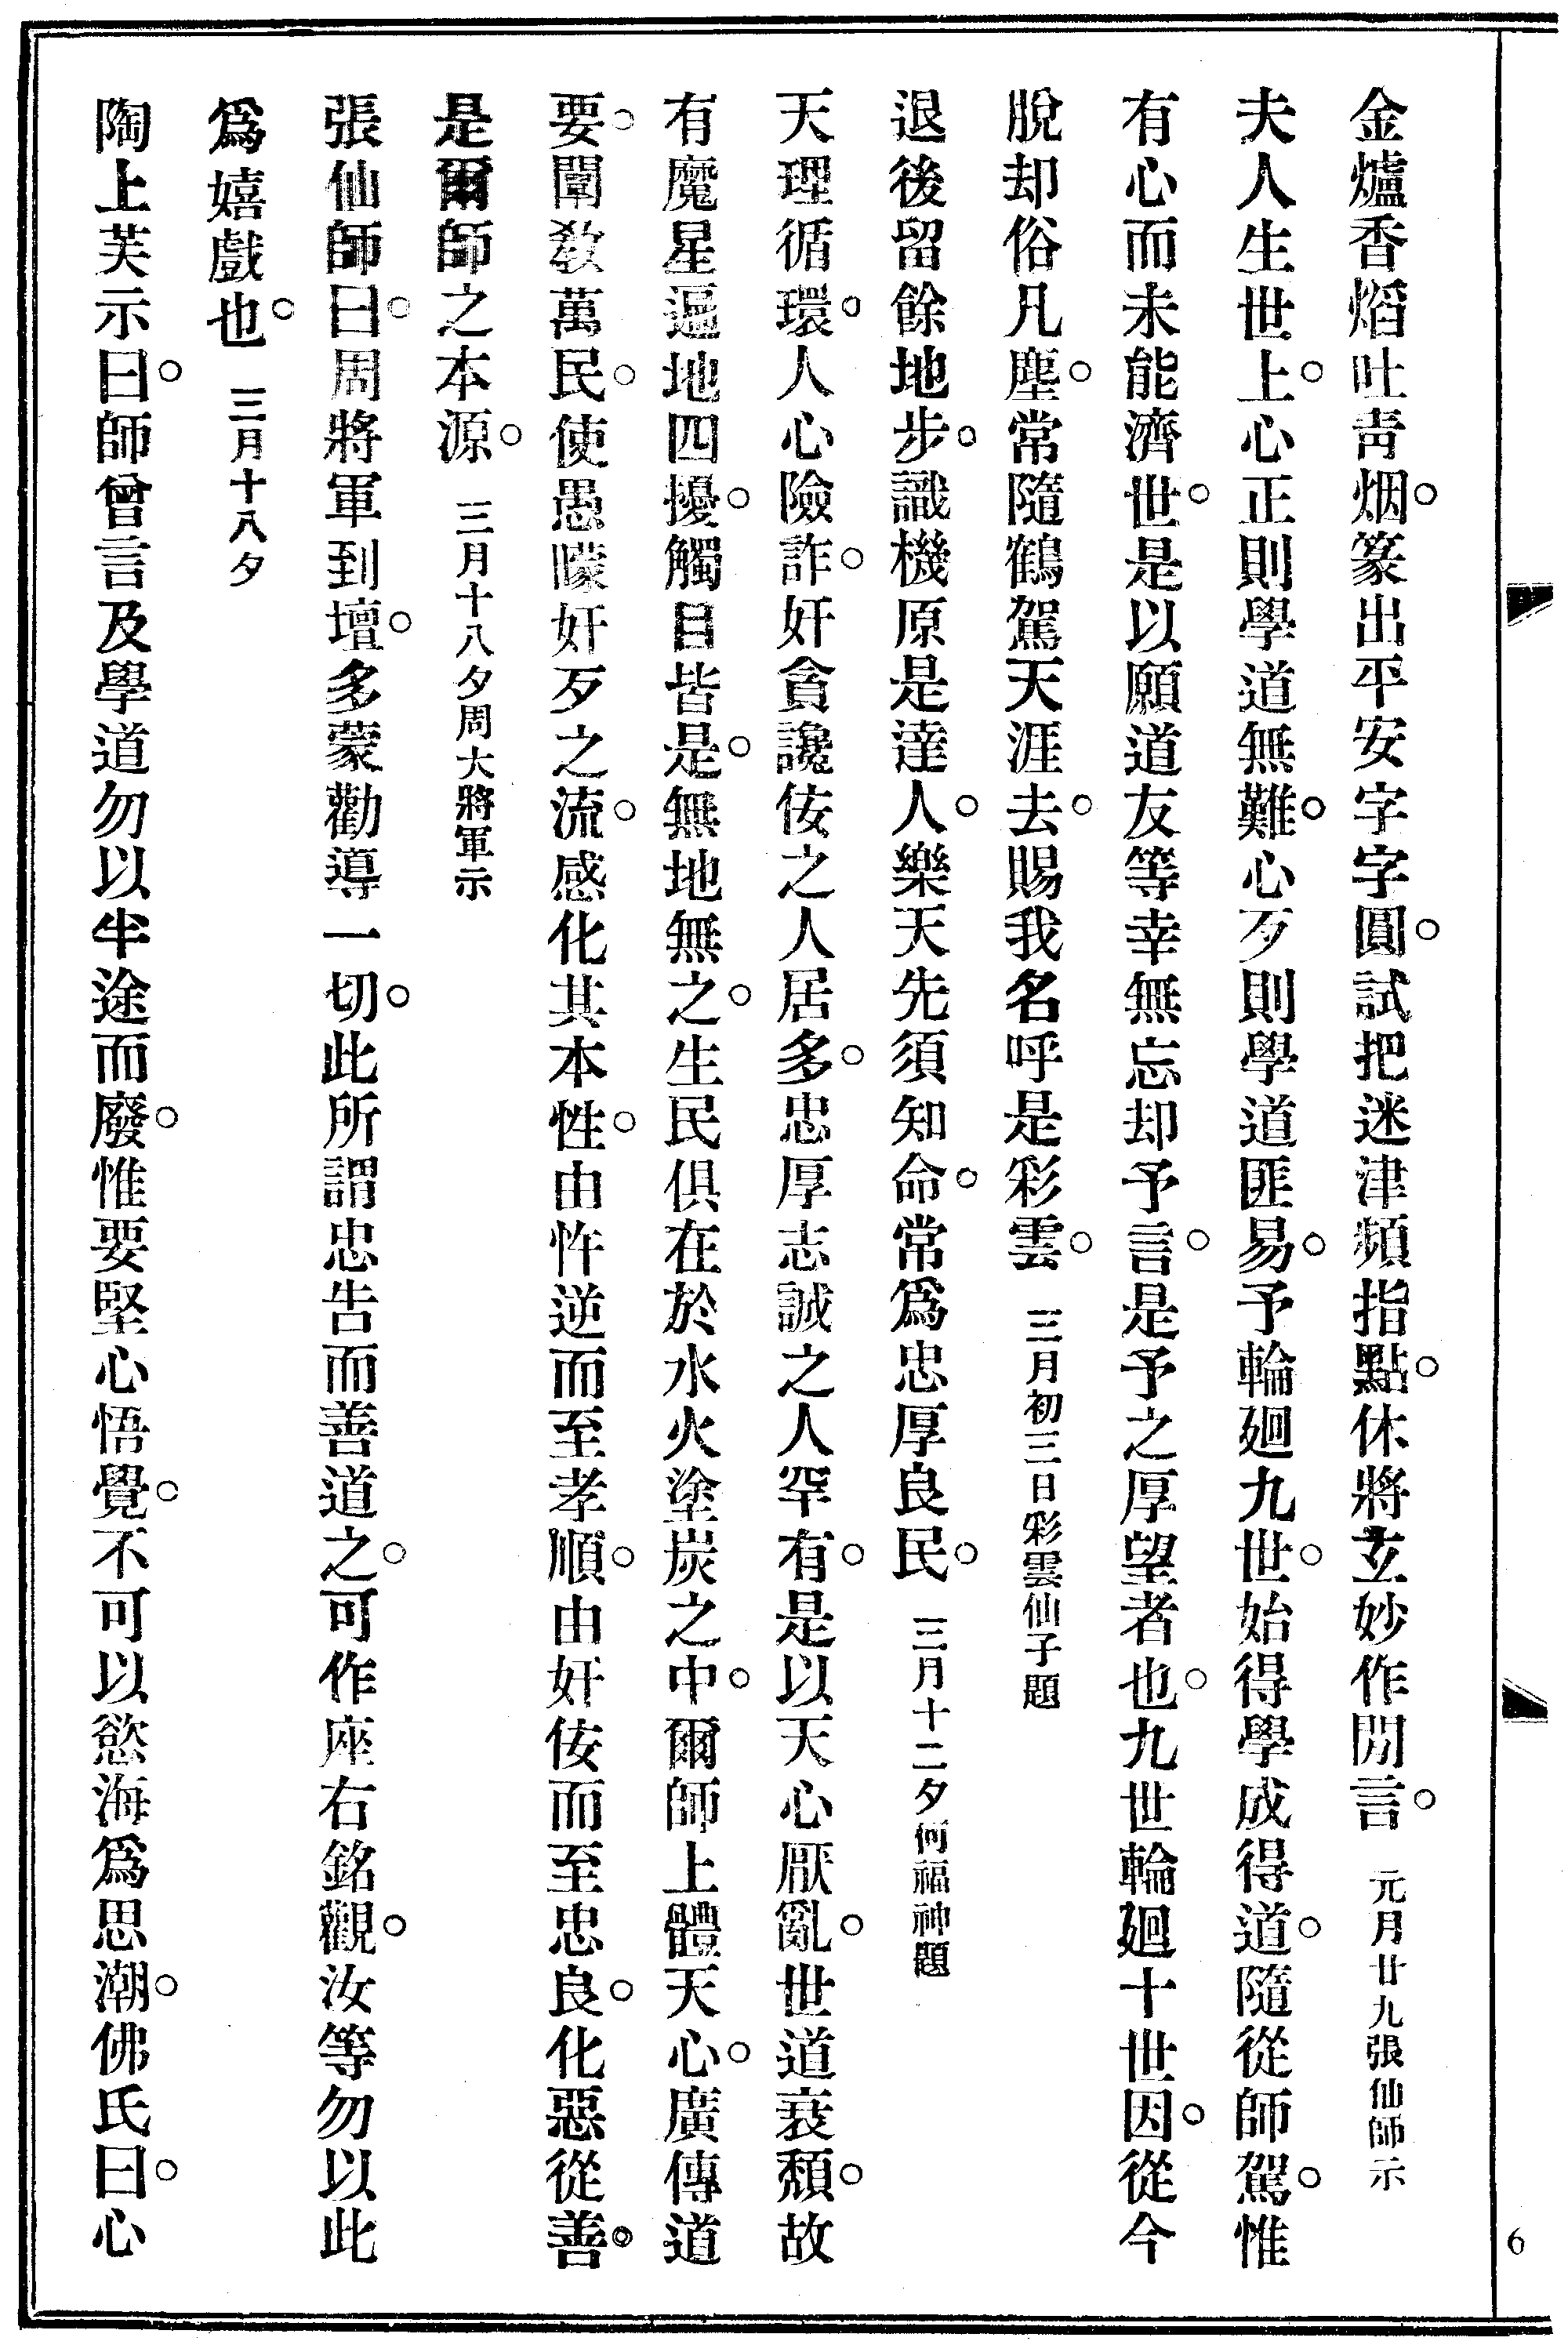 金爐香熖吐靑烟。篆出平安字字圓。試把迷津頻指點。休將玄妙作閒言。 元月廿九張仙師示
夫人生世上。心正則學道無難。心歹則學道匪易。予輪廻九世。始得學成得道。隨從師駕。惟
有心而未能濟世。是以願道友等幸無忘却予言。是予之厚望者也。九世輪廻十世因。從今
脫却俗凡塵。常隨鶴駕天涯去。賜我名呼是彩雲。 三月初三日彩雲仙子題
退後留餘地步。識機原是達人。樂天先須知命。常爲忠厚良民。 三月十二夕何福神題
天理循環。人心險詐。奸貪讒佞之人居多。忠厚志誠之人罕有。是以天心厭亂。世道衰頹。故
有魔星遍地四擾。觸目皆是。無地無之。生民俱在於水火塗炭之中。爾師上體天心。廣傳道
要。闡敎萬民。使愚矇奸歹之流。感化其本性。由忤逆而至孝順。由奸佞而至忠良。化惡從善。
是爾師之本源。 三月十八夕周大將軍示
張仙師曰。周將軍到壇。多蒙勸導一切。此所謂忠告而善道之。可作座右銘觀。汝等勿以此
爲嬉戲也。 三月十八夕
陶上芙示曰。師曾言及學道勿以半途而廢。惟要堅心悟覺。不可以慾海爲思潮。佛氏曰。心
6